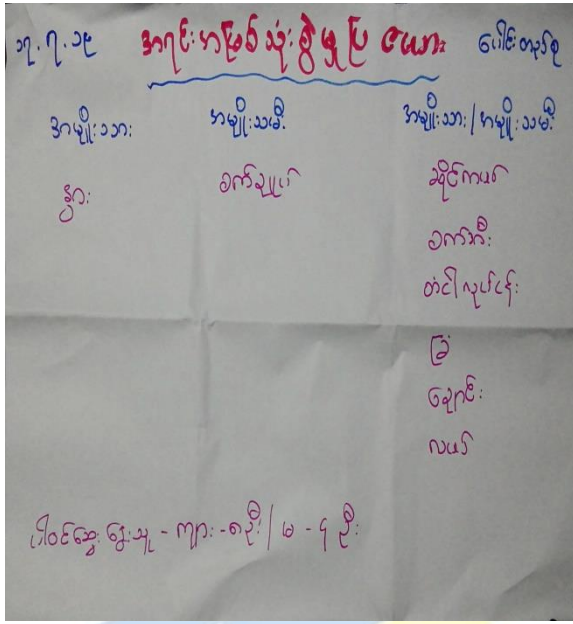 ၁၇.၇.၁၉ အရင်းအမြစ်သုံးစွဲမှုပြဇယား ပေါင်းတည်စု
အမျိုးသား အမျိုးသမီး အမျိုးသား/အမျိုးသမီး
နွား စက်ချုပ် ဆိုင်ကယ်
စက်ဘီး
တံငါလုပ်ငန်း
ခြံ
ချောင်း
လယ်
ပါဝင်ဆွေးနွေးသူ - ကျား - ၈ဦး/ မ - ၄ ဦး